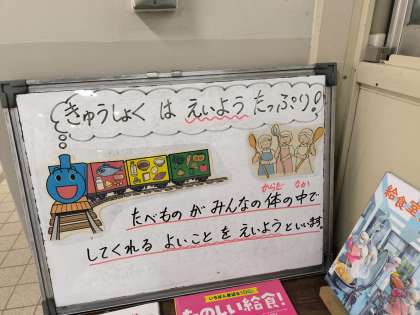 きゅうしょく は えいよう たっぷり!
からだ なか
たべもの が みんなの 体の 中で
してくれる よいこと を えいよう といいます
いちばん身近なSDGs
たのしい給食!
給食室